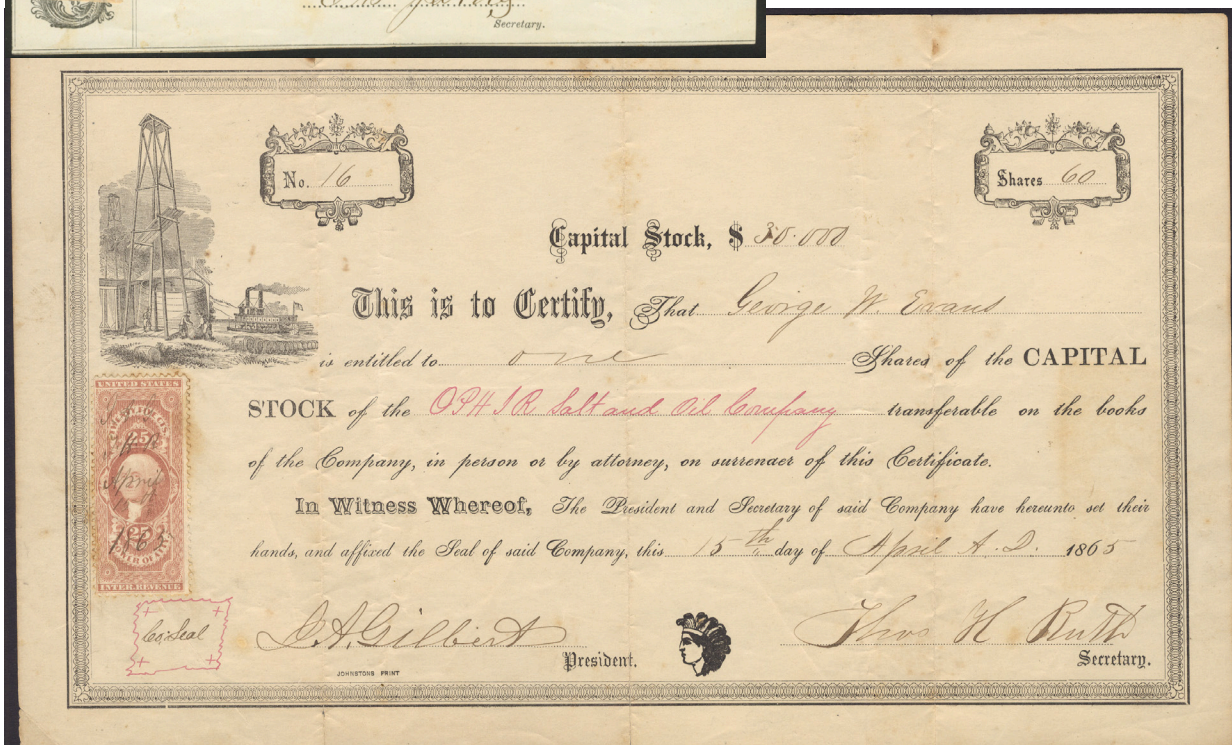 Secretary.
No. 16
Shares 60
Capital Stock, $ 30.000
This is to Certify, That George W. Evans
is entitled to one Shares of the CAPITAL
STOCK of the OPHIR Salt and Oil Company transferable on the books
of the Company, in person or by attorney, on surrenaer of this Certificate.
In Witness Whereof, The President and Secretary of said Company have hereunto set their
hands, and affixed the Seal of said Company, this 15th day of April A.D. 1865
UNITED STATES
25
April
25
1865
INTER. REVENUE
Co. Seal
J. A. Gilbert
President.
Thos H Ruth
Secretary.
JOHNSTONS PRINT